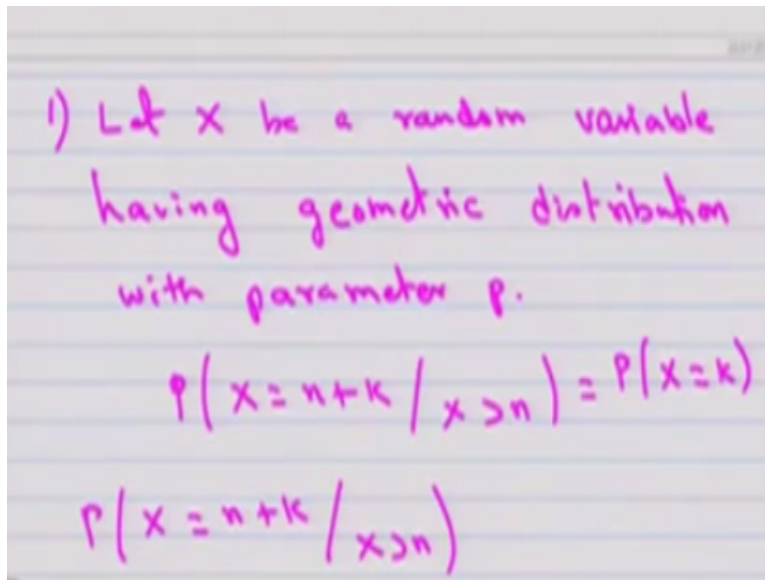 1) Let x be a random variable
having geometric distribution
with parameter p.
P(x = n+k / x>n) = P(x=k)
P(x = n+k / x>n)